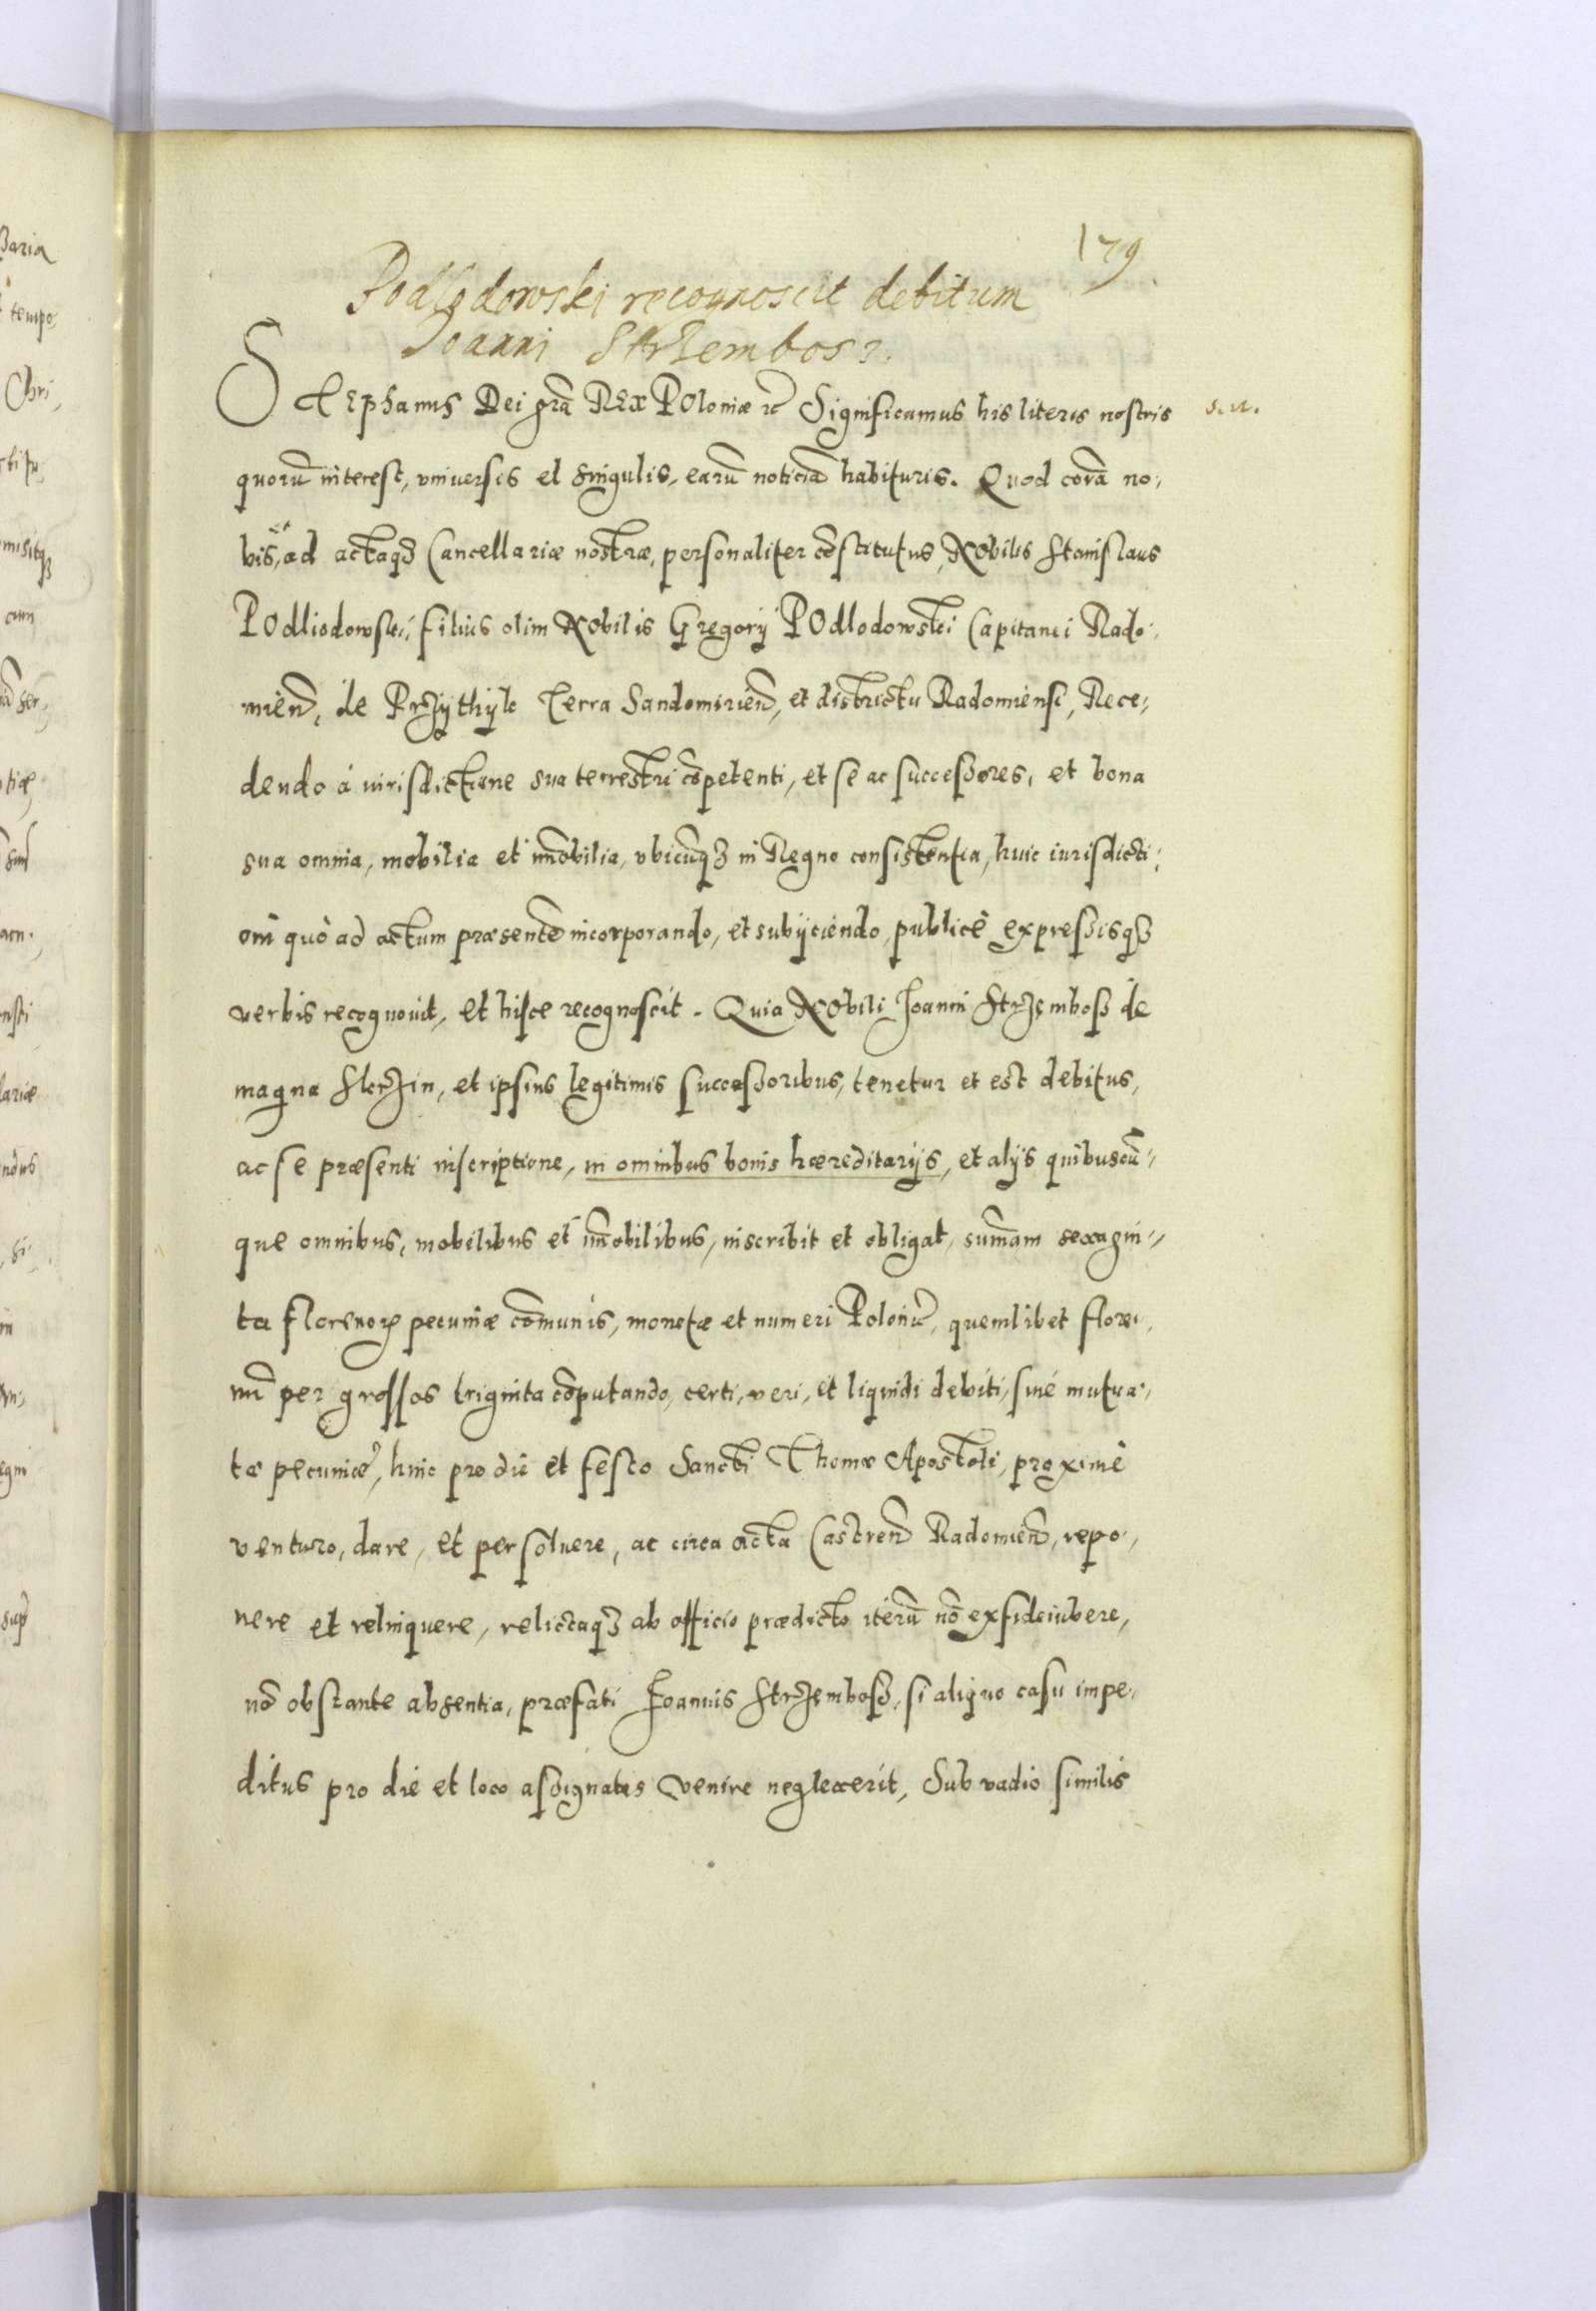 179
Podlodowski recognoscit debitum
Joanni Strzembosz.
Stephanus Dei gra͞ REx POloniæ ꝛc Significamus his literis nostris
s. n.
quorū interest, vniuersis et singulis, earū noticiā habituris. Quod corā no,
bis, ad actaqꝫ Cancellariæ nostræ, personaliter cōstitutus, NObilis Stanislaus
POdliodowski filius olim NObilis Gregorij POdlodowski Capitanei Rado,
mień, de Przythyk Terra Sandomirień, et districtu Radomiensi, Rece,
dendo à iurisdictione sua terrestri cōpetenti, et se ac successores, et bona
sua omnia, mobilia et im̄obilia, vbicūqꝫ in Regno consistentia, huic iurisdicti,
oni quò ad actum præsentē incorporando, et subijciendo, publicè expressisqꝫ
verbis recognouit, et hisce recognoscit. Quia NObili Joanni Strzembosz de
magna Skrzin, et ipsius legitimis successoribus, tenetur et est debitus,
ac se præsenti inscriptione, in omnibus bonis hæreditarijs, et alijs quibuscū,,
que omnibus, mobilibus et im̄obilibus, inscribit et obligat, sum̄am sexagin,,
ta florenoꝝ pecuniæ cōmunis, monetæ et numeri Polonić, quemlibet flore,
nū per grossos triginta cōputando, certi, veri, et liquidi debiti, siué mutua,
tæ pecuniæ, hinc pro die et festo Sancti Thomæ Apostoli, proximè
venturo, dare, et persoluere, ac circa acta Castreń Radomień, repo,
nere et relinquere, relictaqꝫ ab officio prædicto iterū nō exfideiubere,
nō obstante absentia, præfati Joannis Strzembosz, si aliquo casu impe,
ditus pro die et loco assignatis venire neglexerit, Sub vadio similis